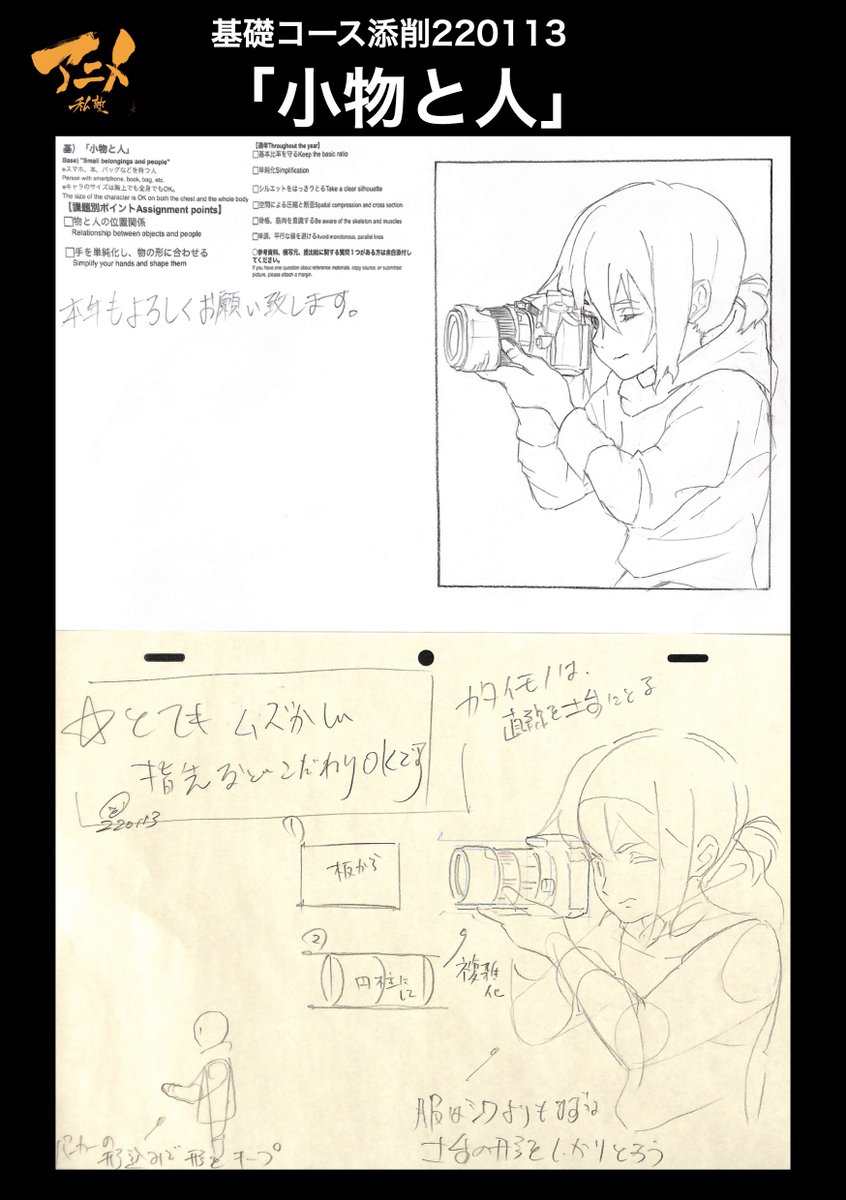 基礎コース添削220113
「小物と人」
アニメ
私塾
基)「小物と人」
Base) "Small belongings and people"
aスマホ、本、バッグなどを持つ人
Person with smartphone, book, bag, etc.
eキャラのサイズは胸上でも全身でもOK。
The size of the character is OK on both the chest and the whole body
【課題別ポイントAssignment points】
□物と人の位置関係
Relationship between objects and people
□手を単純化し、物の形に合わせる
Simplify your hands and shape them
【通年Throughout the year】
□基本比率を守るKeep the basic ratio
□単純化Simplification
□シルエットをはっきりとるTake a clear silhouette
□空間による圧縮と断面Spatial compression and cross section
□骨格、筋肉を意識するBe aware of the skeleton and muscles
□単調、平行な線を避けるAvoid monotonous, parallel lines
○参考資料、模写元、提出絵に関する質問1つがある方は余白添付し
てください。
If you have one question about reference materials, copy source, or submitted
picture, please attach a margin.
本年もよろしくお願い致します。
☆とてもムズかしい
指先などこだわりOKです
220113
カタイモノは、
直線を土台にとる
①
板から
②
円柱にして
複雑化
パーカーの
形込みで形をキープ
服はシワよりもまずは
土台の形をしっかりとろう